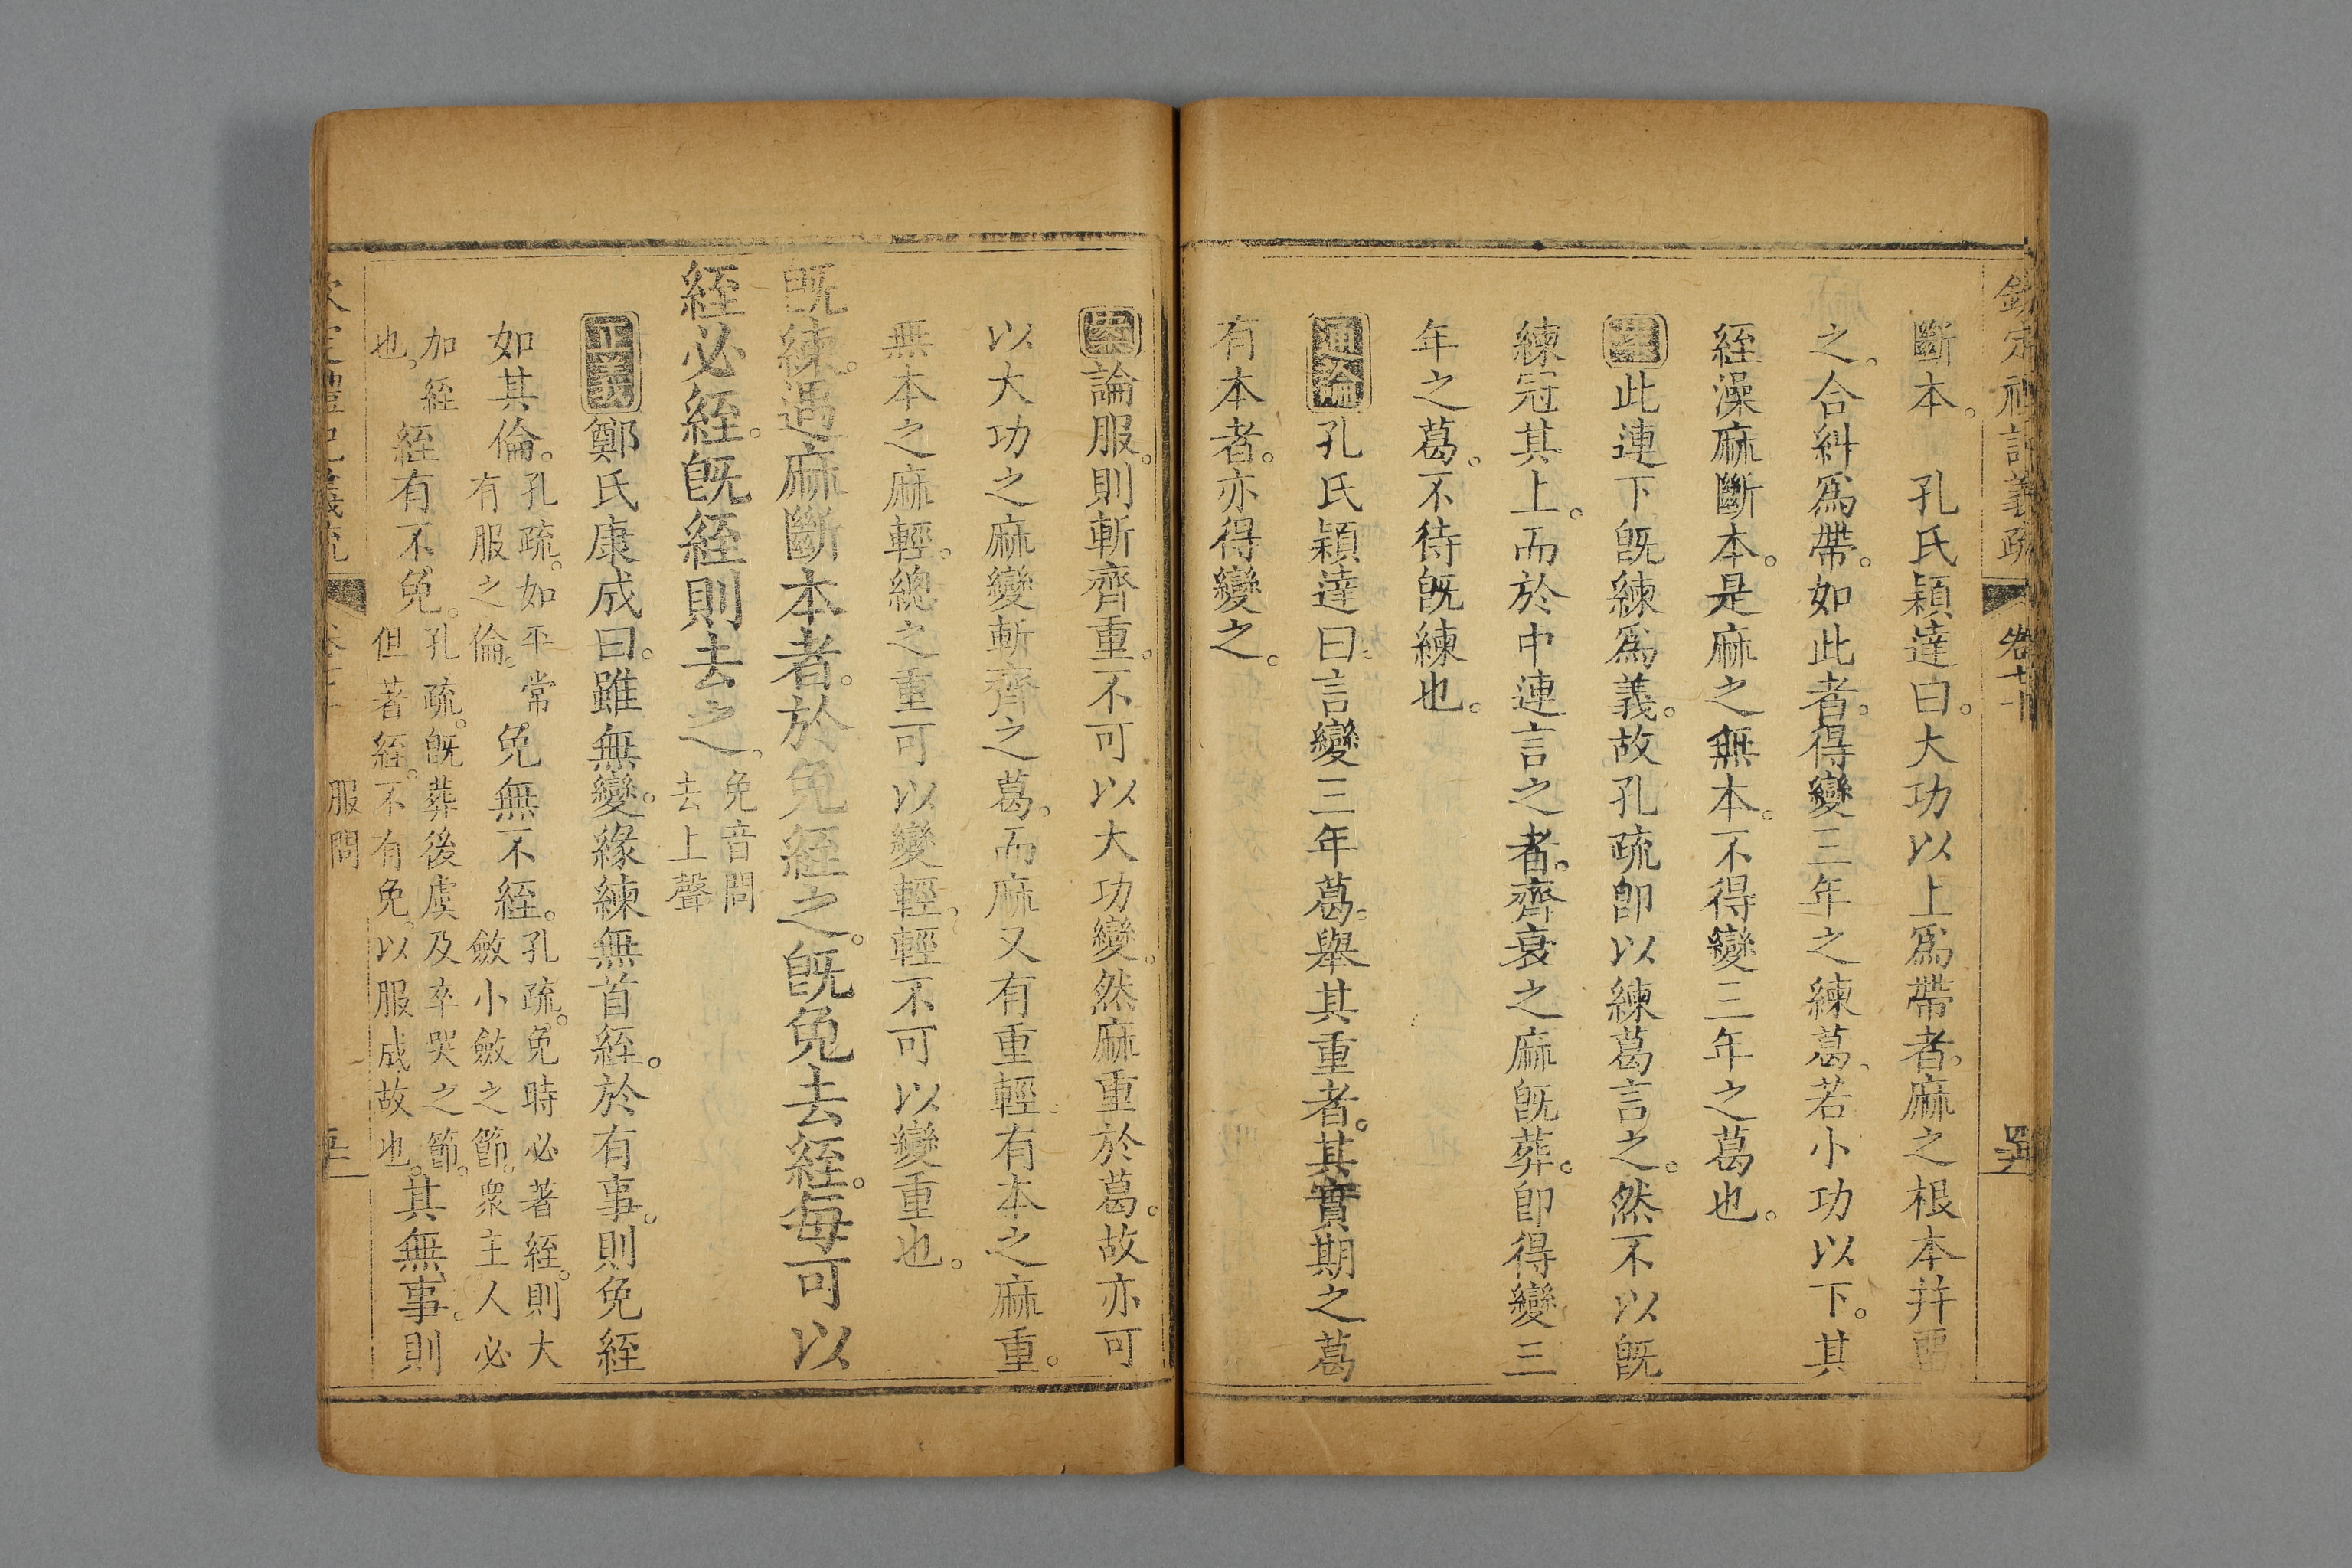 欽定禮記義疏 卷七十
斷本。孔氏穎達曰。大功以上爲帶者。麻之根本幷留
之。合糾爲帶。如此者。得變三年之練葛、若小功以下。其
絰澡麻斷本。是麻之無本。不得變三年之葛也。
案此連下旣練爲義。故孔疏卽以練葛言之。然不以旣
練冠其上。而於中連言之者。齊衰之麻旣葬。卽得變三
年之葛。不待旣練也。
通論孔氏穎達曰。言變三年葛。舉其重者。其實期之葛
有本者。亦得變之。
案論服。則斬齊重。不可以大功變。然麻重於葛。故亦可
以大功之麻變斬齊之葛。而麻又有重輕。有本之麻重。
無本之麻輕。總之重可以變輕。輕不可以變重也。
旣練。遇麻斷本者。於免絰之。旣免去絰。每可以
絰必絰。旣絰則去之。免音問
去上聲
正義鄭氏康成曰。雖無變。緣練無首絰。於有事。則免絰
如其倫。孔疏。如平常
有服之倫。免無不絰。孔疏。免時必著絰。則大
斂小斂之節。衆主人必
加絰
也。絰有不免。孔疏。旣葬後虞及卒哭之節。
但著絰。不有免。以服成故也。其無事。則
服問